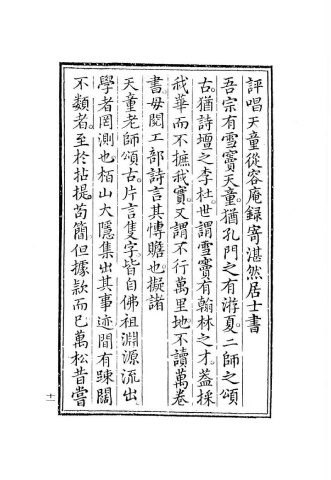 評唱天童從容庵錄寄湛然居士書
吾宗有雪竇天童猶孔門之有游夏。二師之頌
古。猶詩壇之李杜。世謂雪竇有翰林之才。蓋採
我華而不摭我實。又謂不行萬里地不讀萬卷
書。毋閱工部詩。言其博贍也。擬諸
天童老師頌古。片言隻字。皆自佛祖淵源流出
學者罔測也。栢山大隱集出其事迹。間有踈闊
不類者。至於拈提。苟簡。但據款而已。萬松昔嘗
十一